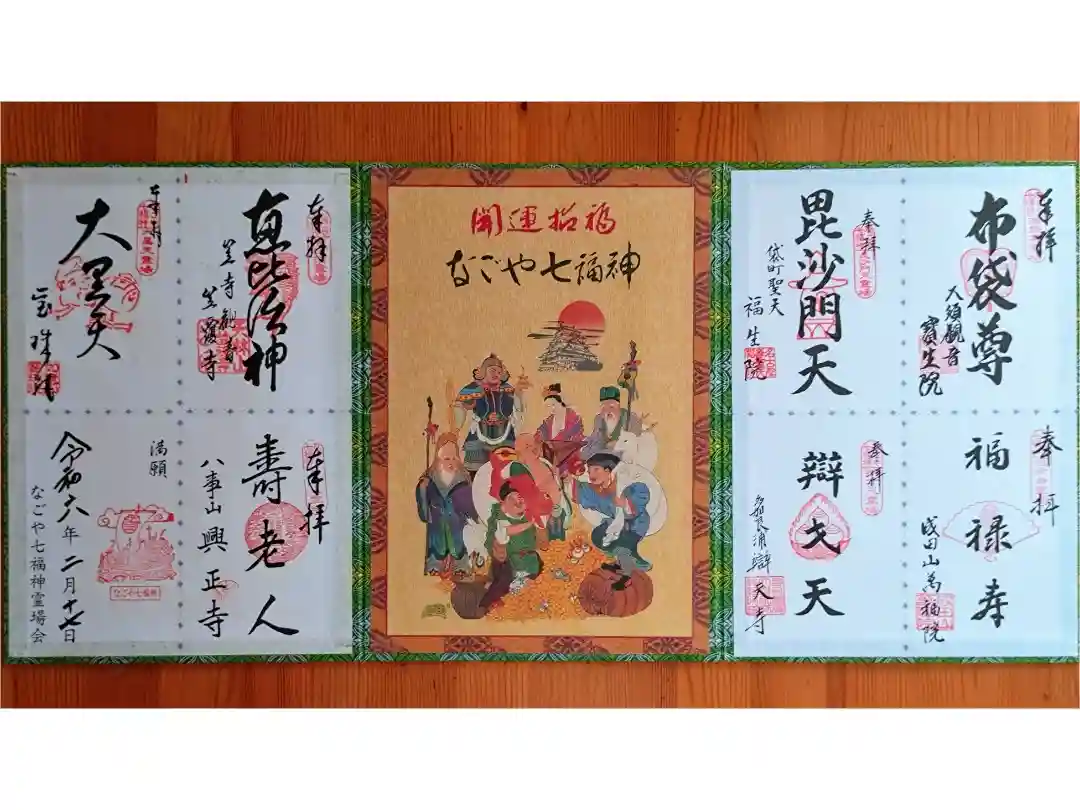 開運招福
なごや七福神
奉拝
布袋尊
大須観音
寳生院
奉拝
毘沙門天
袋町聖天
福生院
奉拝
福禄寿
成田山萬福院
奉拝
辯天
辯天寺
奉拝
恵比須神
笠寺観音
笠覆寺
奉拝
大黒天
宝珠院
奉拝
寿老人
八事山興正寺
満願
令和六年二月十七日
なごや七福神霊場会
なごや七福神